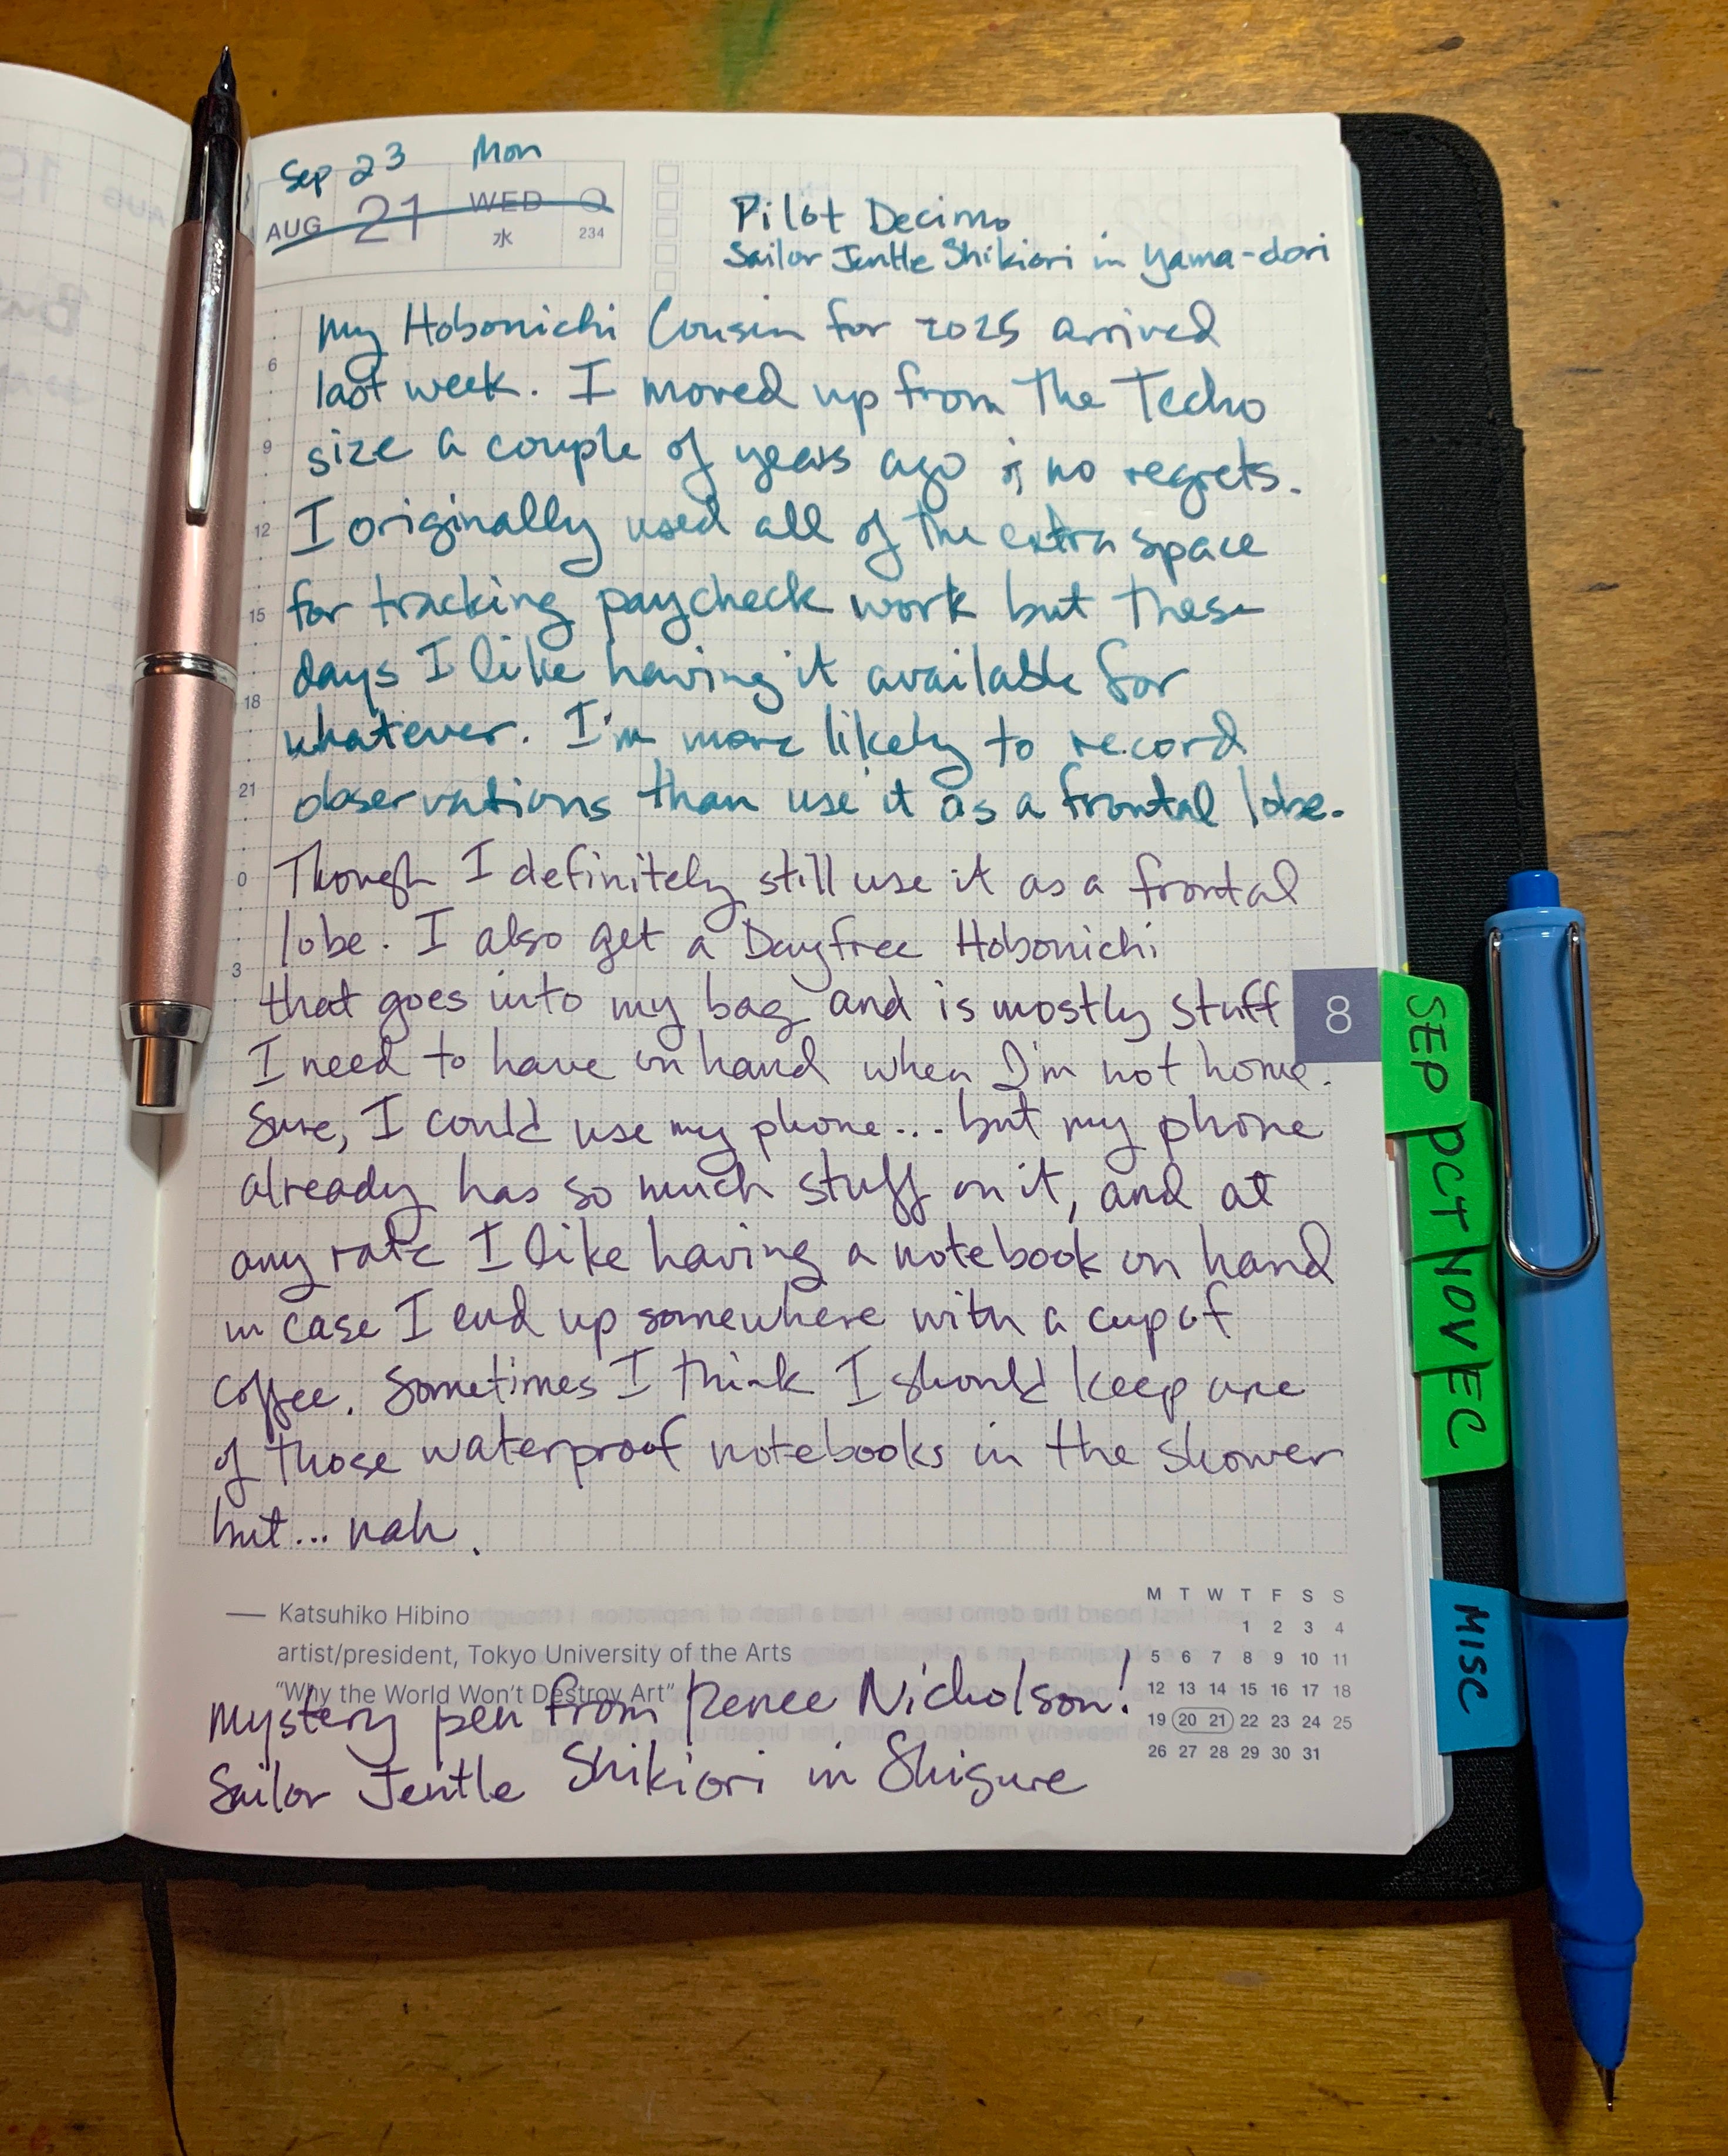 Sep 23 Mon
AUG 21 WED
水 234
Pilot Decimo
Sailor Jentle Shikiori in Yama-dori
My Hobonichi Cousin for 2025 arrived
last week. I moved up from the Techo
size a couple of years ago & no regrets.
I originally used all of the extra space
for tracking paycheck work but these
days I like having it available for
whatever. I'm more likely to record
observations than use it as a frontal lobe.
Though I definitely still use it as a frontal
lobe. I also get a Dayfree Hobonichi
that goes into my bag and is mostly stuff
I need to have on hand when I'm not home.
Sure, I could use my phone... but my phone
already has so much stuff on it, and at
any rate I like having a notebook on hand
in case I end up somewhere with a cup of
coffee. Sometimes I think I should keep one
of those waterproof notebooks in the shower
but... nah.
6
9
12
15
18
21
0
3
8
SEP
OCT
NOV
EC
MISC
— Katsuhiko Hibino
artist/president, Tokyo University of the Arts
"Why the World Won't Destroy Art"
Mystery pen from Renee Nicholson!
Sailor Jentle Shikiori in Shigure
M T W T F S S
1 2 3 4
5 6 7 8 9 10 11
12 13 14 15 16 17 18
19 20 21 22 23 24 25
26 27 28 29 30 31